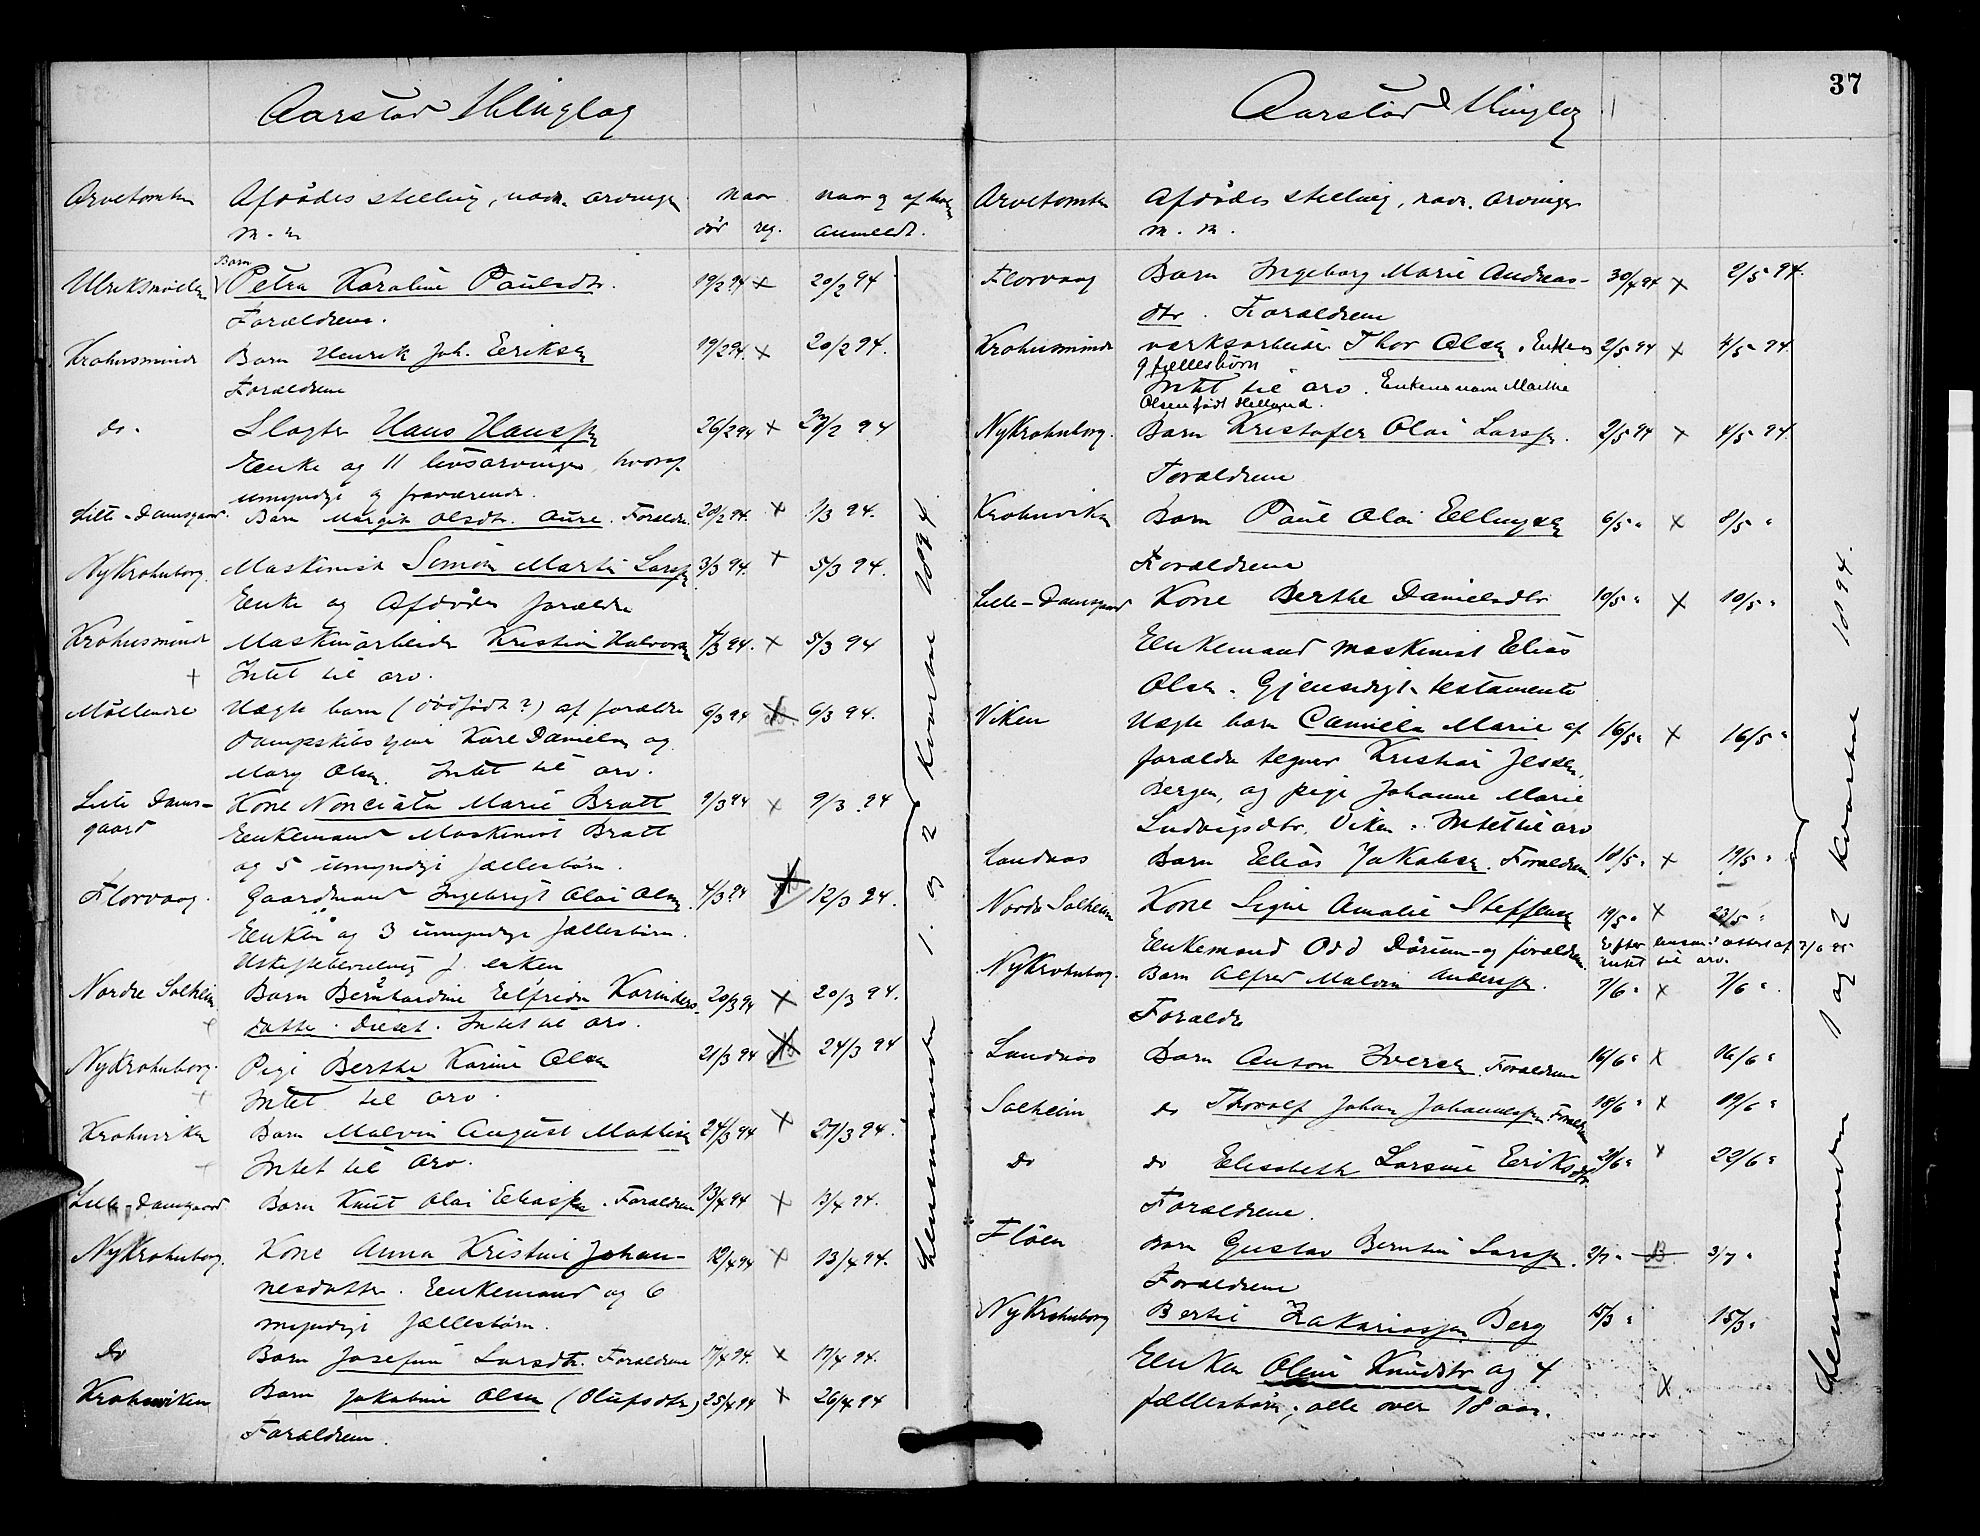 Aarstad Thinglag
Arvetomten Afdødes stelling, navn, arvinger naar naar og af hvem
m. m. dør reg. anmeldt.
Barn
Ulriksmøllen Petra Karoline Paulsdtr. 19/2 94 x 20/2 94
Forældrene.
Krohnsminde Barn Henrik Joh. Eriksen 19/2 94. x 20/2 94.
Forældrene
do. Slagter Hans Hanssen 26/2 94 x 27/2 94
Enke og 11 livsarvinger, hvoraf
umyndige og fraværende.
Lille-Damsgaard. Barn Margit Olsdtr. Aure. Forældre. 28/2 94. x 1/3 94.
NyKrohnborg. Maskinist Simon Martin Larssen 3/3 94. x 5/3 94.
Enke og Afdødes forældre
Krohnsminde Maskinarbeider Kristian Halvorsen 4/3 94. x 5/3 94
+ Intet til arv.
Møllendal Uægte barn (dødfødt?) af forældre 6/3 94 x 6/3 94.
Dampskibs Karl Danielsen og
Mary Olsen. Intet til arv.
Lille Dams- Kone Nonciata Marie Bratt 9/3 94 x 9/3 94
gaard Enkemand Maskinist Bratt
og 5 umyndige fællesbørn.
Florvaag. Gaardmand Ingebrigt Olai Olsen 4/3 94 x 12/3 94.
Enken og 3 umyndige fællesbørn.
Uskiftebevilling f. enken
Nordre Solheim Barn Bernhardine Elfrida Karinders- 20/3 94 x 20/3 94.
+ datter. Intet til arv.
NyKrohnborg. Pige Berthe Karine Olsen 21/3 94 x 24/3 94
+ Intet til arv.
Krohnviken Barn Malvin August Mathisen 24/3 94 x 27/3 94.
+ Intet til Arv.
Lille-Damsgaard Barn Knut Olai Eliassen. Forældrene 13/4 94 x 13/4 94.
NyKrohnborg. Kone Anna Kristine Johan- 12/4 94 x 13/4 94.
nesdatter. Enkemand og 6
myndige fællesbørn.
Do Barn Josefine Larsdtr. Forældrene 17/4 94. x 17/4 94.
Krohnviken Barn Jakobine Olsen (Olufsdtr) 25/4 94 x 26/4 94
Forældrene.
Lensmanden 1. og 2 kvartal 1894.
37
Aarstad Thinglag
Arvetomten Afdødes stelling, navn. Arvinger
m. m.
Florvaag Barn Ingeborg Marie Andreas- 30/4 94 x 2/5 94.
dtr. Forældrene
Krohnsminde værksarbeider Thor Olsen. Enken 2/5 94 x 4/5 94.
og fællesbørn
Intet til arv. Enkens navn Marthe
Olsen født Helland.
NyKrohnborg. Barn Kristofer Olai Larssen. 2/5 94 x 4/5 94.
Forældrene
Krohnviken Barn Paul Olai Ellingsen 6/5 " x 8/5 "
Forældrene
Lille-Damsgaard Kone Berthe Danielsdtr 10/5 " x 10/5 "
Enkemand maskinist Elias
Olsen. Gjensidigt testamente
Viken Uægte barn Camilla Marie af 16/5 " x 16/5 "
forældre tegner Kristian Jessen,
Bergen, og pige Johanne Marie
Ludvigsdtr. Viken. Intet til arv
Landaas Barn Elias Jakobsen. Forældrene 18/5 " x 19/5 "
Nordre Solheim Kone Signe Amalie Steffensen 19/5 " x 23/5 "
Enkemand Odd Dørum og forældrene. Efter lensm. attest af 7/6 95
intet til arv.
NyKrohnborg. Barn Alfred Malvin Anderssen. 7/6 " x 7/6 "
Forældre
Landaas Barn Anton Iversen. Forældrene 16/6 " x 16/6 "
Solheim do Thorolf Johan Johannessen Forældrene 18/6 " x 19/6 "
do do Elisabeth Larsine Eriksdtr. 21/6 " x 22/6 "
Forældrene.
Fløen Barn Gustav Berntin Larssen. 2/7 " 3/7 "
Forældrene
NyKrohnborg Bertil Zakariassen Berg 15/3 " 15/3 "
Enken Oline Knudsdtr og 4
fællesbørn, alle over 18 aar. x
Lensmanden 1 og 2 kvartal 1894.